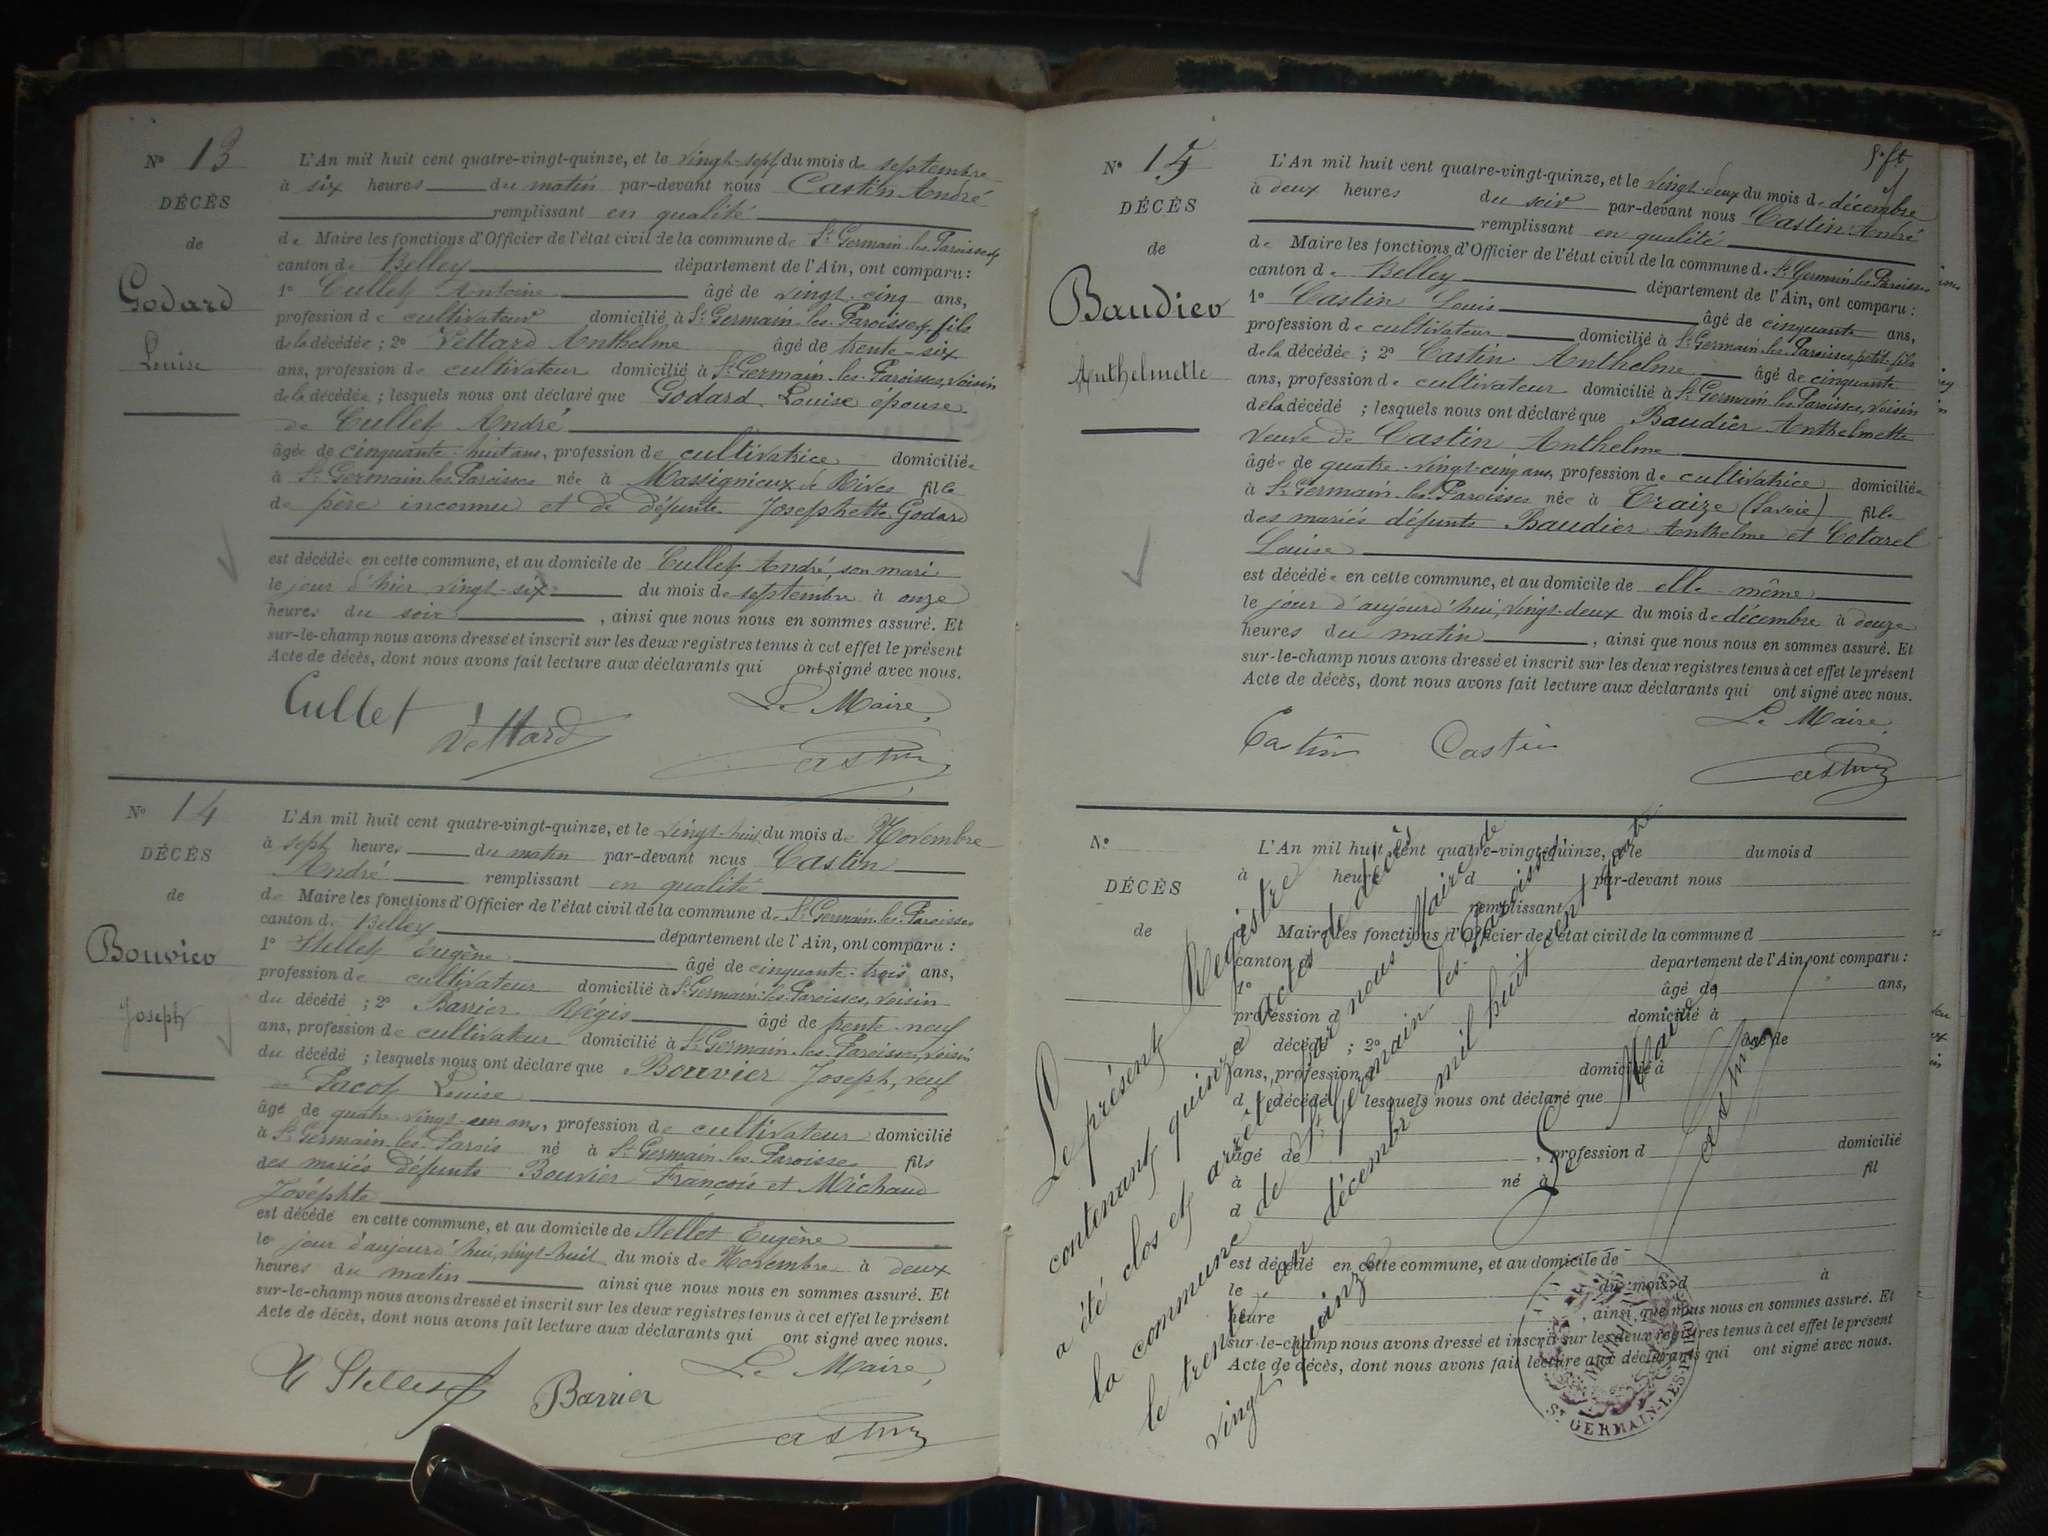 Nº 13
DÉCÈS
de
Godard
Louise
L'An mil huit cent quatre-vingt-quinze, et le vingt-sept du mois de septembre
à six heures du matin par-devant nous Castin André
remplissant en qualité
de Maire les fonctions d'Officier de l'état civil de la commune de St Germain-les-Paroisses
canton de Belley département de l'Ain, ont comparu :
1º Cullet Antoine âgé de vingt-cinq ans,
profession de cultivateur domicilié à St Germain-les-Paroisses, fils
de la décédée ; 2º Vettard Anthelme âgé de trente-six
ans, profession de cultivateur domicilié à St Germain-les-Paroisses, voisin
de la décédée ; lesquels nous ont déclaré que Godard Louise epouse
de Cullet André
âgée de cinquante-huit ans, profession de cultivatrice domiciliée
à St Germain-les-Paroisses née à Massignieux de Rives fille
de père inconnu et de défunte Josephette Godard
est décédée en cette commune, et au domicile de Cullet André, son mari
le jour d'hier vingt-six du mois de septembre à onze
heures du soir, ainsi que nous nous en sommes assuré. Et
sur-le-champ nous avons dressé et inscrit sur les deux registres tenus à cet effet le présent
Acte de décès, dont nous avons fait lecture aux déclarants qui ont signé avec nous.
Le Maire,
Cullet Vettard Castin
Nº 14
DÉCÈS
de
Bouvier
Joseph
L'An mil huit cent quatre-vingt-quinze, et le vingt-huit du mois de Novembre
à sept heures du matin par-devant nous Castin
André remplissant en qualité
de Maire les fonctions d'Officier de l'état civil de la commune de St Germain-les-Paroisses
canton de Belley département de l'Ain, ont comparu :
1º Stellet Eugène âgé de cinquante-trois ans,
profession de cultivateur domicilié à St Germain-les-Paroisses, voisin
du décédé ; 2º Barrier Régis âgé de trente-neuf
ans, profession de cultivateur domicilié à St Germain-les-Paroisses, voisin
du décédé ; lesquels nous ont déclaré que Bouvier Joseph, veuf
de Pacot Louise
âgé de quatre-vingt-un ans, profession de cultivateur domicilié
à St Germain-les-Parois né à St Germain-les-Paroisses fils
des mariés défunts Bouvier François et Michaud
Joséphte
est décédé en cette commune, et au domicile de Stellet Eugène
le jour d'aujourd'hui, vingt-huit du mois de Novembre à deux
heures du matin ainsi que nous nous en sommes assuré. Et
sur-le-champ nous avons dressé et inscrit sur les deux registres tenus à cet effet le présent
Acte de décès, dont nous avons fait lecture aux déclarants qui ont signé avec nous.
Le Maire,
Stellet Barrier Castin
Nº 15
DÉCÈS
de
Baudier
Anthelmette
L'An mil huit cent quatre-vingt-quinze, et le vingt-deux du mois de décembre
à deux heures du soir par-devant nous Castin André
remplissant en qualité
de Maire les fonctions d'Officier de l'état civil de la commune de St Germain-les-Paroisses
canton de Belley département de l'Ain, ont comparu :
1º Castin Louis âgé de cinquante ans,
profession de cultivateur domicilié à St Germain-les-Paroisses, petit-fils
de la décédée ; 2º Castin Anthelme âgé de cinquante
ans, profession de cultivateur domicilié à St Germain-les-Paroisses, voisin
de la décédé ; lesquels nous ont déclaré que Baudier Anthelmette
veuve de Castin Anthelme
âgée de quatre-vingt-cinq ans, profession de cultivatrice domiciliée
à St Germain-les-Paroisses née à Traize (Savoie) fille
des mariés défunts Baudier Anthelme et Cotarel
Louise
est décédée en cette commune, et au domicile de elle-même
le jour d'aujourd'hui, vingt-deux du mois de décembre à douze
heures du matin, ainsi que nous nous en sommes assuré. Et
sur-le-champ nous avons dressé et inscrit sur les deux registres tenus à cet effet le présent
Acte de décès, dont nous avons fait lecture aux déclarants qui ont signé avec nous.
Le Maire,
Castin Castin Castin
Nº
DÉCÈS
de
L'An mil huit cent quatre-vingt-quinze, et le du mois d
à heure d par-devant nous
remplissant
d Maire les fonctions d'Officier de l'état civil de la commune d
canton d département de l'Ain, ont comparu :
1º âgé de ans,
profession d domicilié à
d décédé ; 2º âgé de
ans, profession d domicilié à
d décédé ; lesquels nous ont déclaré que
âgé de , profession d domicilié
à né à fil
d
est décédé en cette commune, et au domicile de
le du mois d à
heure , ainsi que nous nous en sommes assuré. Et
sur-le-champ nous avons dressé et inscrit sur les deux registres tenus à cet effet le présent
Acte de décès, dont nous avons fait lecture aux déclarants qui ont signé avec nous.
Le présent Registre
contenant quinze actes de décès
a été clos et arrêté par nous Maire de
la commune de St Germain-les-Paroisses
le trente-un décembre mil huit cent quatre
vingt quinze
Le Maire
Castin
MAIRIE
ST GERMAIN-LES-PAROISSES